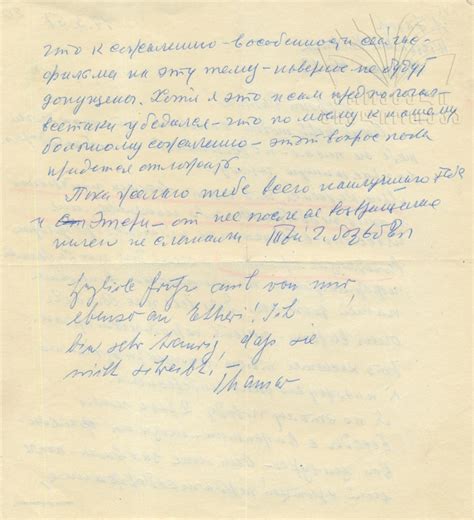 что к сожалению – в особенности сейчас
фильма на эту тему – наверное не будут
допущены. Хотя я это и сам предполагал
всетаки убедился – что по моему к нашему
большому сожалению – этот вопрос пока
придется отложить.
Пока желаю тебе всего наилучшего Тебе
и Этери – от нее после ее возвращения
ничего не слышали Твой
herzliche Grüße auch von mir,
ebenso an Etheri! Ich
bin sehr traurig, daß sie
nicht schreibt! Thamar